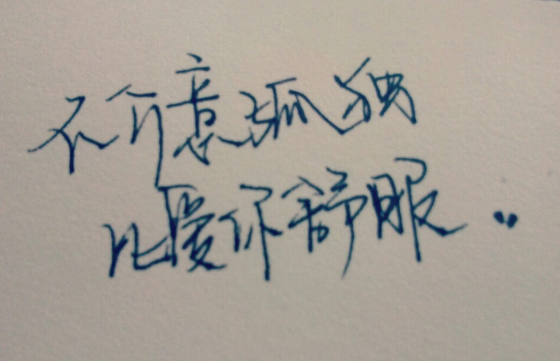 不介意孤独
比爱你舒服..